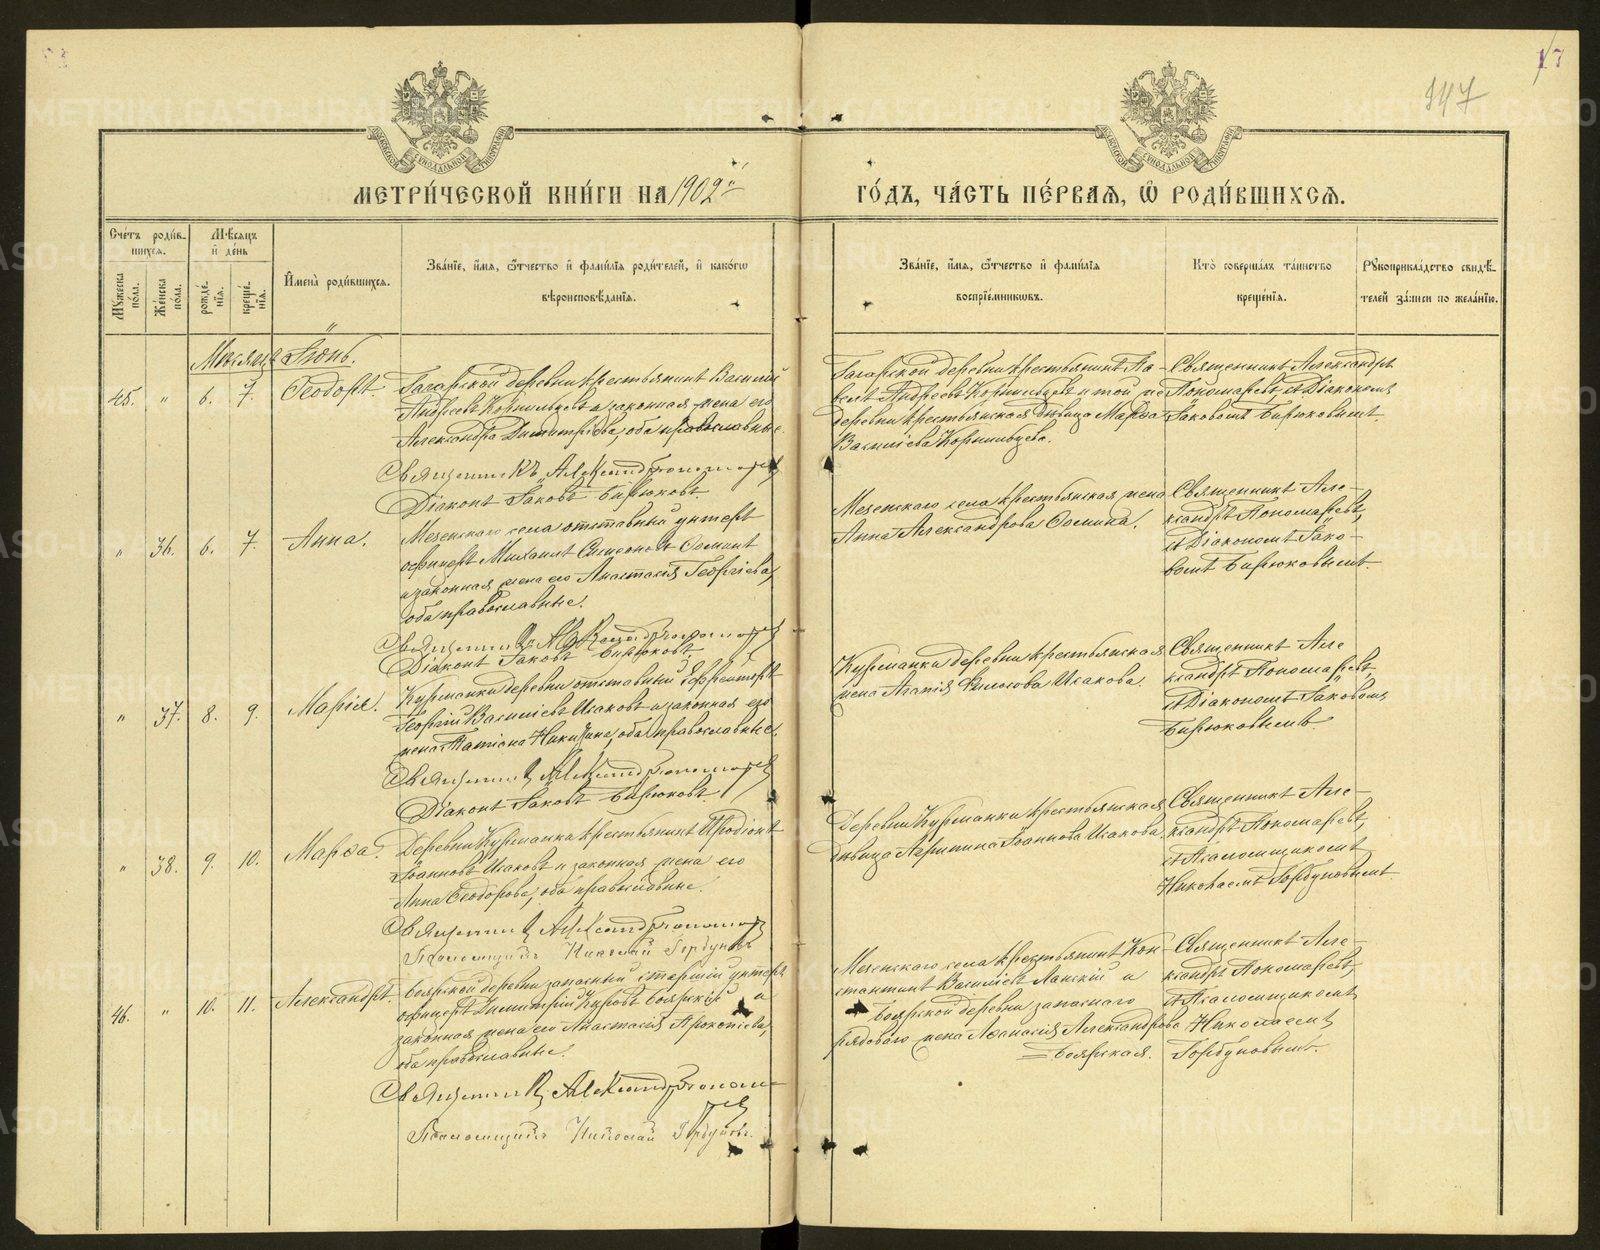 147
17
МЕТРИ́ЧЕСКОЙ КНИ́ГИ НА 1902й
ГО́ДЪ, ЧА́СТЬ ПЕ́РВАѦ, Ѽ РОДИ́ВШИХСѦ.
Сче́тъ роди́вшихсѧ.
Мѣ́сѧцъ и де́нь
И҆мена̀ роди́вшихсѧ.
Зва́нїе, и҆́мѧ, ѻ҆́тчество и҆ фами́лїѧ роди́телей, и҆ како́гѡ
вѣроисповѣ́данїѧ.
Зва́нїе, и҆́мѧ, ѻ҆́тчество и҆ фами́лїѧ
воспрїе́мникѡвъ.
Кто̀ соверша́лъ та́инство
креще́нїѧ.
Рꙋкоприкла́дство свидѣ́-
телей за́писи по жела́нїю.
Мꙋ́жеска по́ла.
Же́нска по́ла.
рожде́нїѧ.
креще́нїѧ.
Мѣсяцъ Іюнь.
45. " 6. 7. Ѳеодоръ.
Гагарской деревни крестьянинъ Василій
Андреевъ Корнильцевъ и законная жена его
Александра Димитріева, оба православные.
Священникъ Александръ Пономаревъ
Діаконъ Іаковъ Бирюковъ
Гагарской деревни крестьянинъ Па-
велъ Андреевъ Корнильцевъ и той же
деревни крестьянская дѣвица Марѳа
Василіева Корнильцева.
Священникъ Александръ
Пономаревъ, съ Діакономъ
Іаковомъ Бирюковымъ.
" 36. 6. 7. Анна.
Мезенскаго села отставный унтеръ
офицеръ Михаилъ Симеоновъ Ѳоминъ
и законная жена его Анастасія Георгіева,
оба православные.
Священникъ Александръ Пономаревъ
Діаконъ Іаковъ Бирюковъ
Мезенскаго села крестьянская жена
Анна Александрова Ѳомина.
Священникъ Але-
ксандръ Пономаревъ,
съ Діакономъ Іако-
вомъ Бирюковымъ.
" 37. 8. 9. Марія.
Курманки деревни отставный ефрейторъ
Георгій Василіевъ Исаковъ и законная его
жена Татіана Никитина, оба православные.
Священникъ Александръ Пономаревъ
Діаконъ Іаковъ Бирюковъ.
Курманки деревни крестьянская
жена Агапія Исакова.
Священникъ Але
ксандръ Пономаревъ,
съ Діакономъ Іаковомъ
Бирюковымъ.
" 38. 9. 10. Марѳа.
Деревни Курманки крестьянинъ Иродіонъ
Іоанновъ Исаковъ и законная жена его
Анна Ѳеодорова, оба православные.
Священникъ Александръ Пономаревъ
Псаломщикъ Николай Горбуновъ
Деревни Курманки крестьянская
дѣвица Агрипина Іоаннова Исакова.
Священникъ Але-
ксандръ Пономаревъ,
съ Псаломщикомъ
Николаемъ Горбуновымъ.
46. " 10. 11. Александръ.
Боярской деревни запасный старшій унтеръ
офицеръ Димитрій Боярскій и
законная жена его Анастасія Прокопіева,
оба православные.
Священникъ Александръ Понома-
ревъ
Псаломщикъ Николай Горбуновъ.
Мезенскаго села крестьянинъ Кон-
стантинъ Василіевъ Ланскій и
Боярской деревни запаснаго
рядоваго жена Аѳанасія Александрова
Боярская.
Священникъ Але-
ксандръ Пономаревъ,
съ Псаломщикомъ
Николаемъ
Горбуновымъ.
METRIKI.GASO-URAL.RU